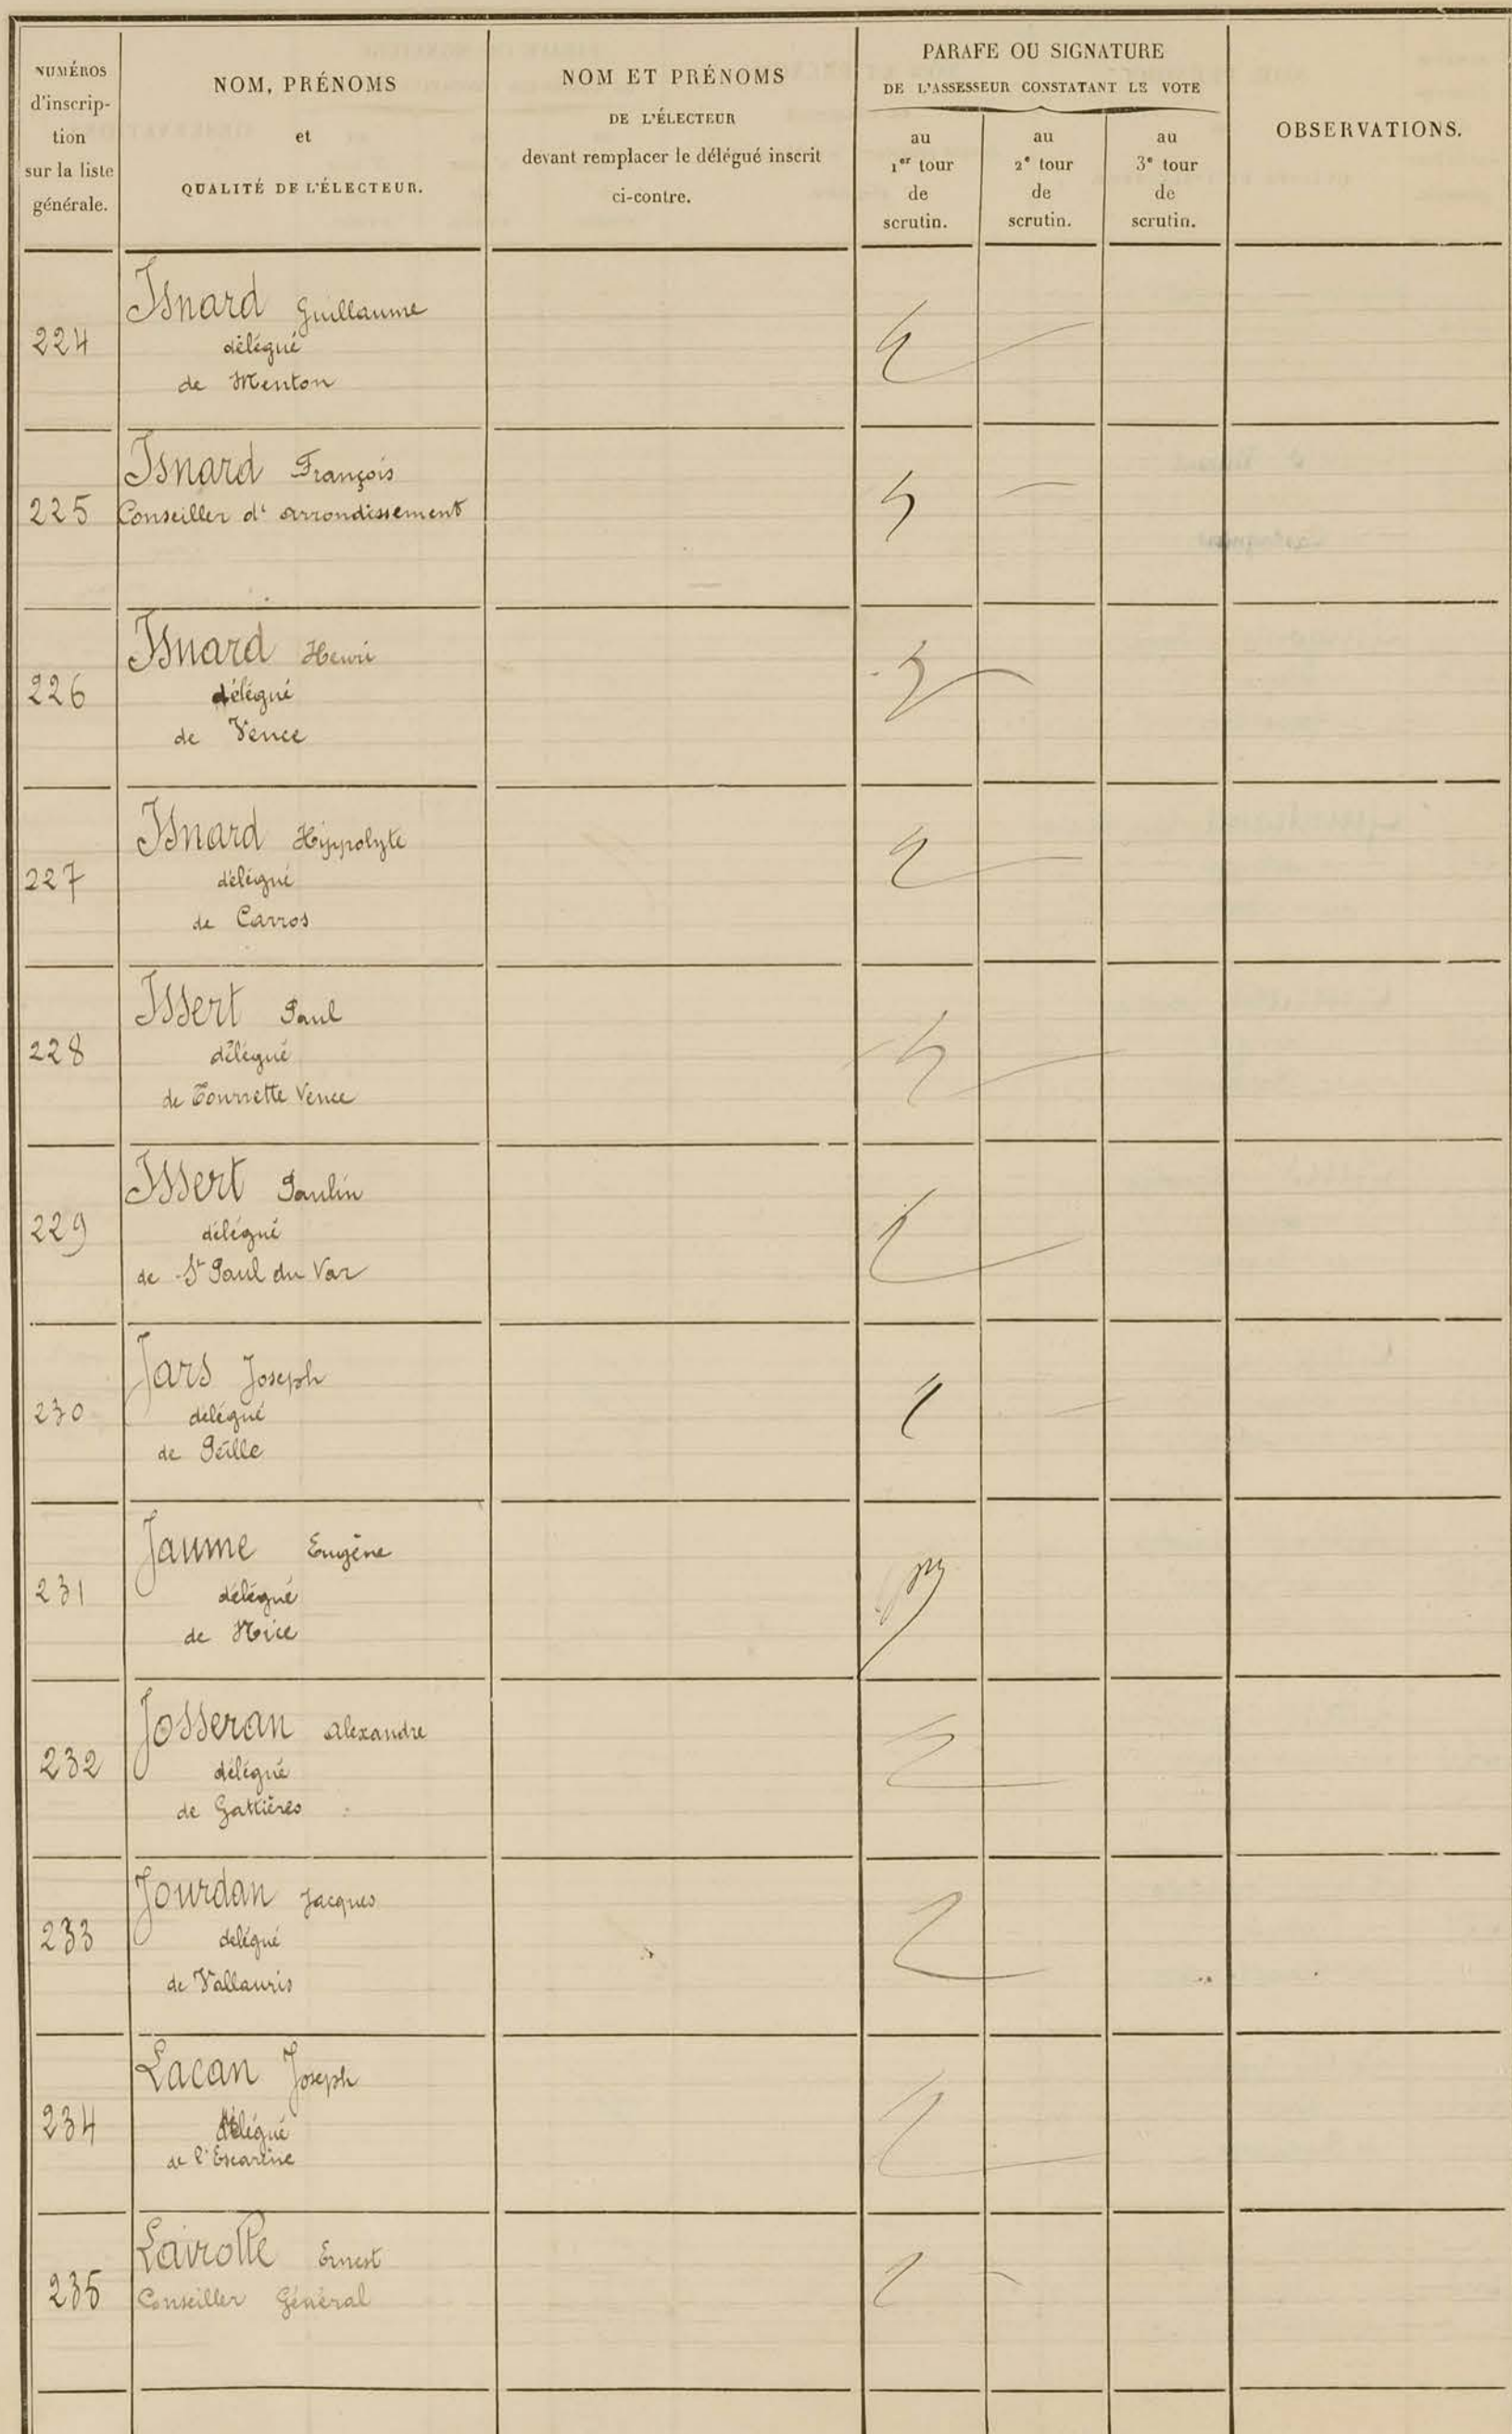 NUMÉROS
d'inscrip-
tion
sur la liste
générale.
NOM, PRÉNOMS
et
QUALITÉ DE L'ÉLECTEUR.
NOM ET PRÉNOMS
DE L'ÉLECTEUR
devant remplacer le délégué inscrit
ci-contre.
PARAFE OU SIGNATURE
DE L'ASSESSEUR CONSTATANT LE VOTE
au
1er tour
de
scrutin.
au
2e tour
de
scrutin.
au
3e tour
de
scrutin.
OBSERVATIONS.
224
Isnard Guillaume
délégué
de Menton
225
Isnard François
Conseiller d'arrondissement
226
Isnard Henri
délégué
de Vence
227
Isnard Hippolyte
délégué
de Carros
228
Issert Paul
délégué
de Tourrette Vence
229
Issert Paulin
délégué
de St Paul du Var
230
Jars Joseph
délégué
de Peille
231
Jaume Eugène
délégué
de Nice
232
Josseran Alexandre
délégué
de Gattières
233
Jourdan Jacques
délégué
de Vallauris
234
Lacan Joseph
délégué
de l'Escarène
235
Lairolle Ernest
Conseiller Général